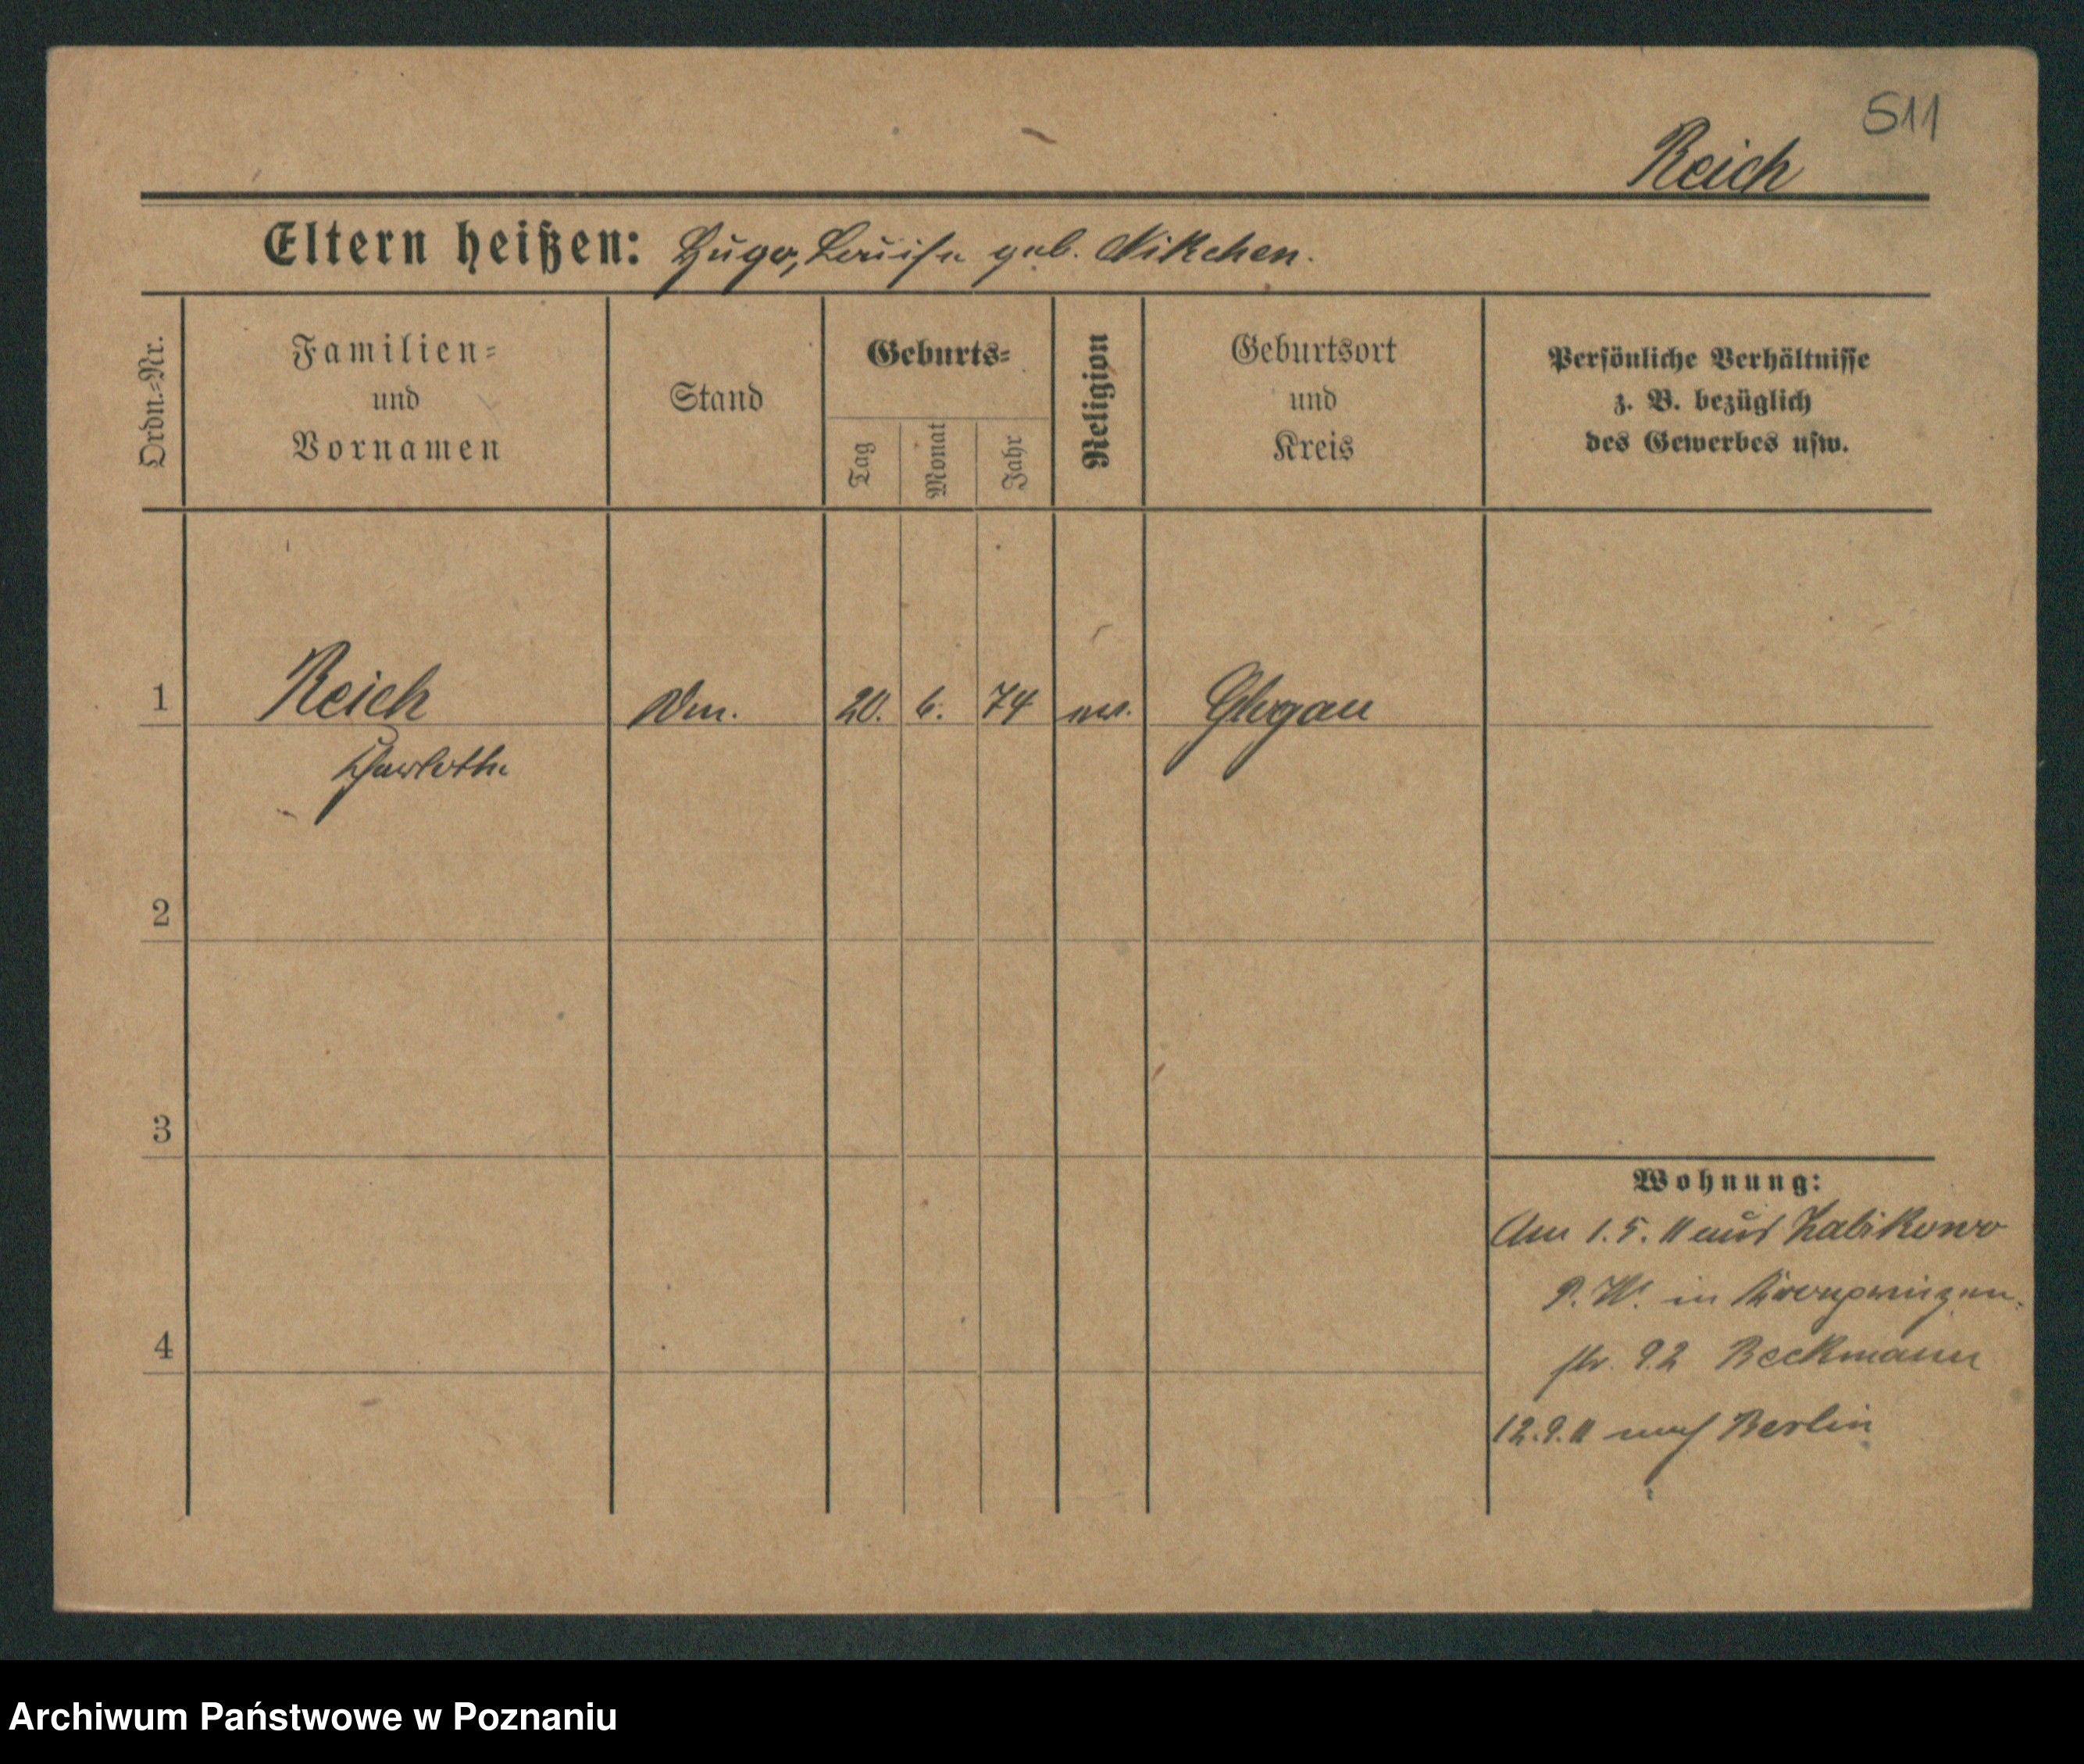 511
Reich
Eltern heißen: Hugo, Louise geb. Nikchen.
Ordn.-Nr.
Familien-
und
Vornamen
Stand
Geburts-
Tag
Monat
Jahr
Religion
Geburtsort
und
Kreis
Persönliche Verhältnisse
z. B. bezüglich
des Gewerbes usw.
1 Reich 20. 6. 74 Glogau
Charlotte
2
3
4
Wohnung:
Am 1.5.11 aus Zabikowo
P.W. in Kronprinzen-
str. 92 Beckmann
12.9.11 nach Berlin
Archiwum Państwowe w Poznaniu